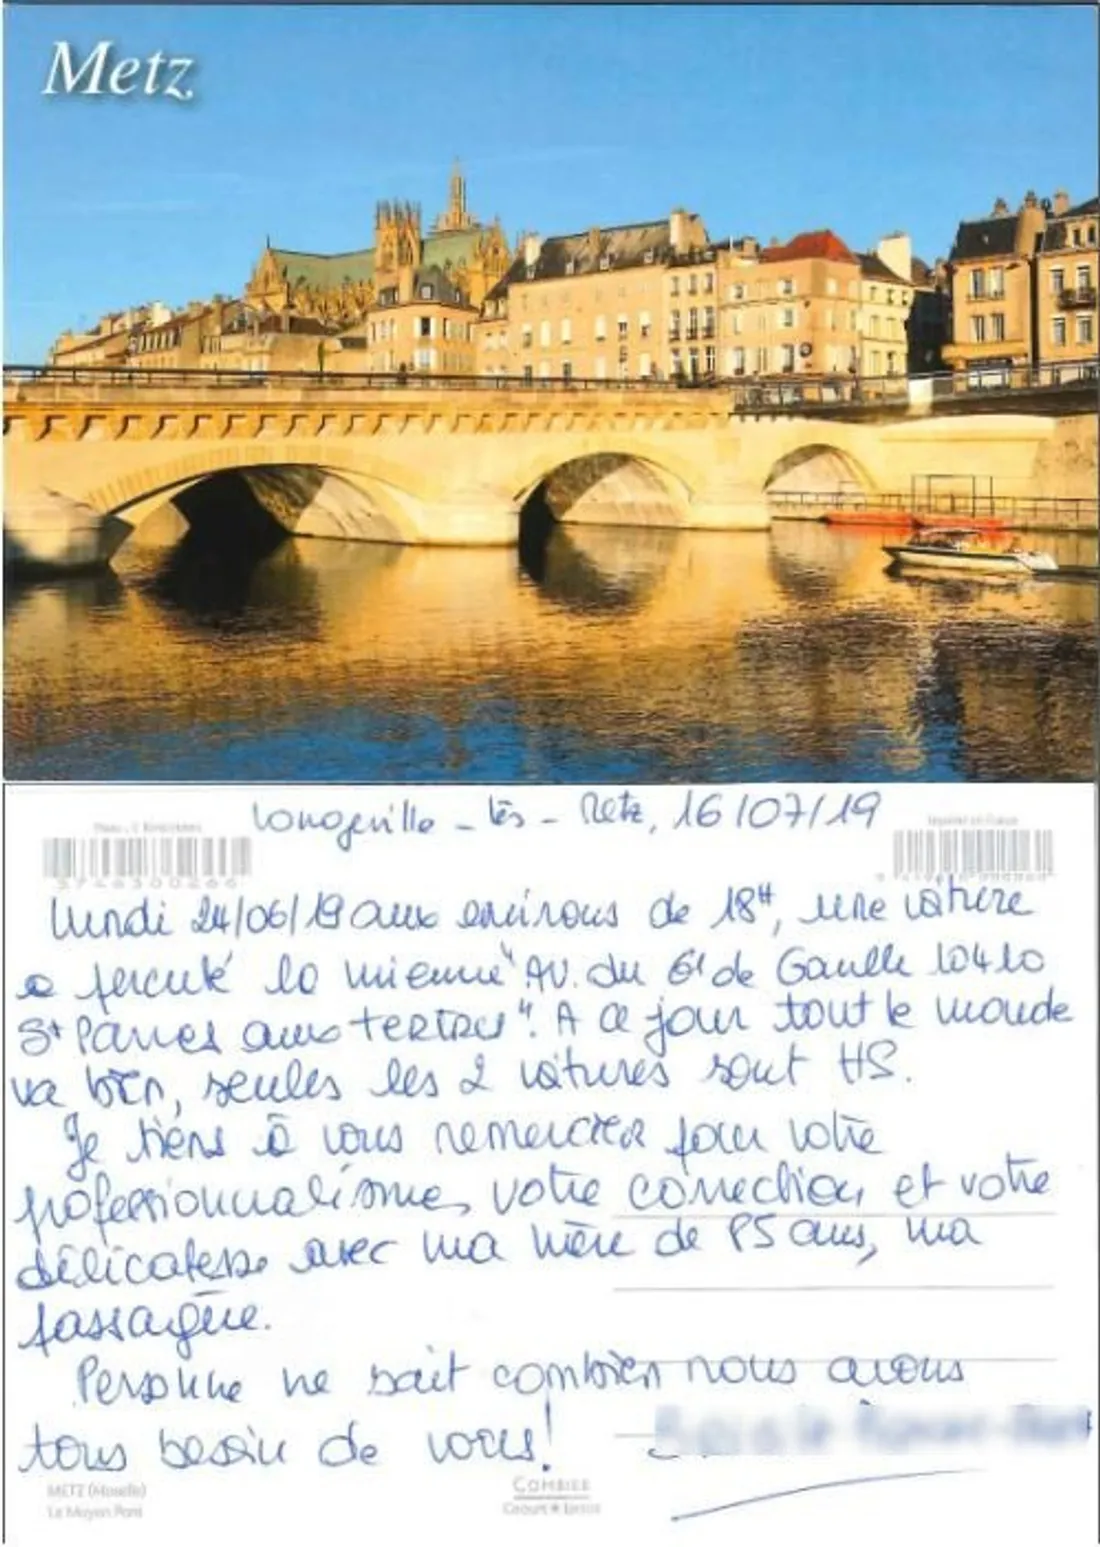 Metz
Longeville - lès - Metz, 16/07/19
lundi 24/06/19 aux environs de 18H, une voiture
a percuté la mienne "AV. du Gl de Gaulle 10410
St Parres aux tertres". A ce jour tout le monde
va bien, seules les 2 voitures sont HS.
Je tiens à vous remercier pour votre
professionnalisme, votre correction et votre
délicatesse avec ma mère de 85 ans, ma
passagère.
Personne ne sait combien nous avons
tous besoin de vous!
METZ (Moselle)
Le Moyen Pont
COMBIER